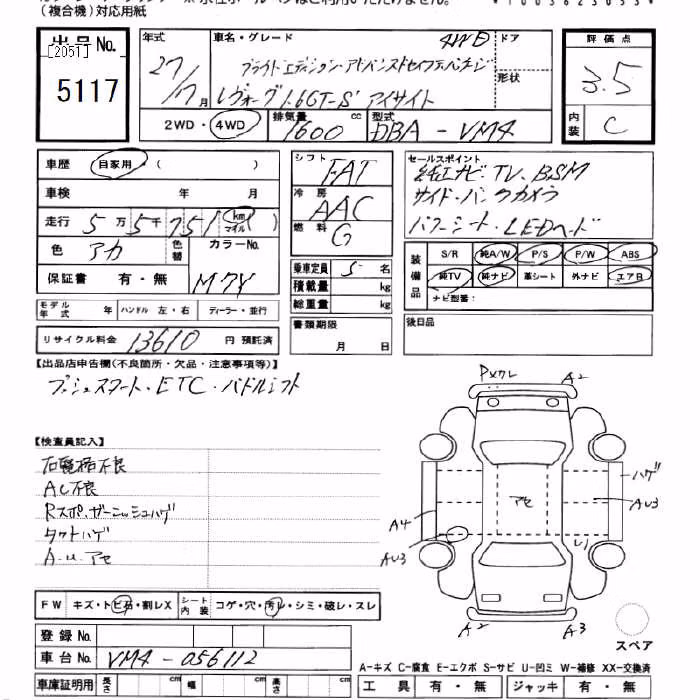 (複合機)対応用紙
出品No.
[2051]
5117
年式
27/7月
車名・グレード
4WD
ドア
形状
ブライトエディション・アドバンスドセイフティパッケージ
レヴォーグ1.6GT-S アイサイト
2WD・4WD
排気量
1600 cc
型式
DBA-VM4
評価点
3.5
内装
C
車歴
自家用・( )
車検 年 月
走行 5万5千751 km マイル
色 アカ 色替
カラーNo.
M7Y
保証書 有・無
モデル年式 年
ハンドル 左・右
ディーラー・並行
リサイクル料金 13610 円 預託済
シフト FAT
冷房 AAC
燃料 G
乗車定員 5 名
積載量 kg
総重量 kg
書類期限
月 日
セールスポイント
純正ナビ・TV、BSM
サイド・バックカメラ
パワーシート・LEDヘッド
装備品
S/R 純A/W P/S P/W ABS
純TV 純ナビ 革シート 外ナビ エアB
ナビ型番:
後日品
【出品店申告欄(不良箇所・欠品・注意事項等)】
プッシュスタート・ETC・パドルシフト
【検査員記入】
AC不良
Rスポ、ガーニッシュハゲ
タワトハゲ
A・U アセ
Pメクレ
A2
ハゲ
AU3
アセ
A4
AU3
U1
A2
A3
スペア
FW キズ・トビ石・割レX
シート内装 コゲ・穴・汚レ・シミ・破レ・スレ
登録No.
車台No. VM4-056112
車庫証明用 長さ cm 幅 cm 高さ cm
A-キズ C-腐食 E-エクボ S-サビ U-凹ミ W-補修 XX-交換済
工具 有・無 ジャッキ 有・無